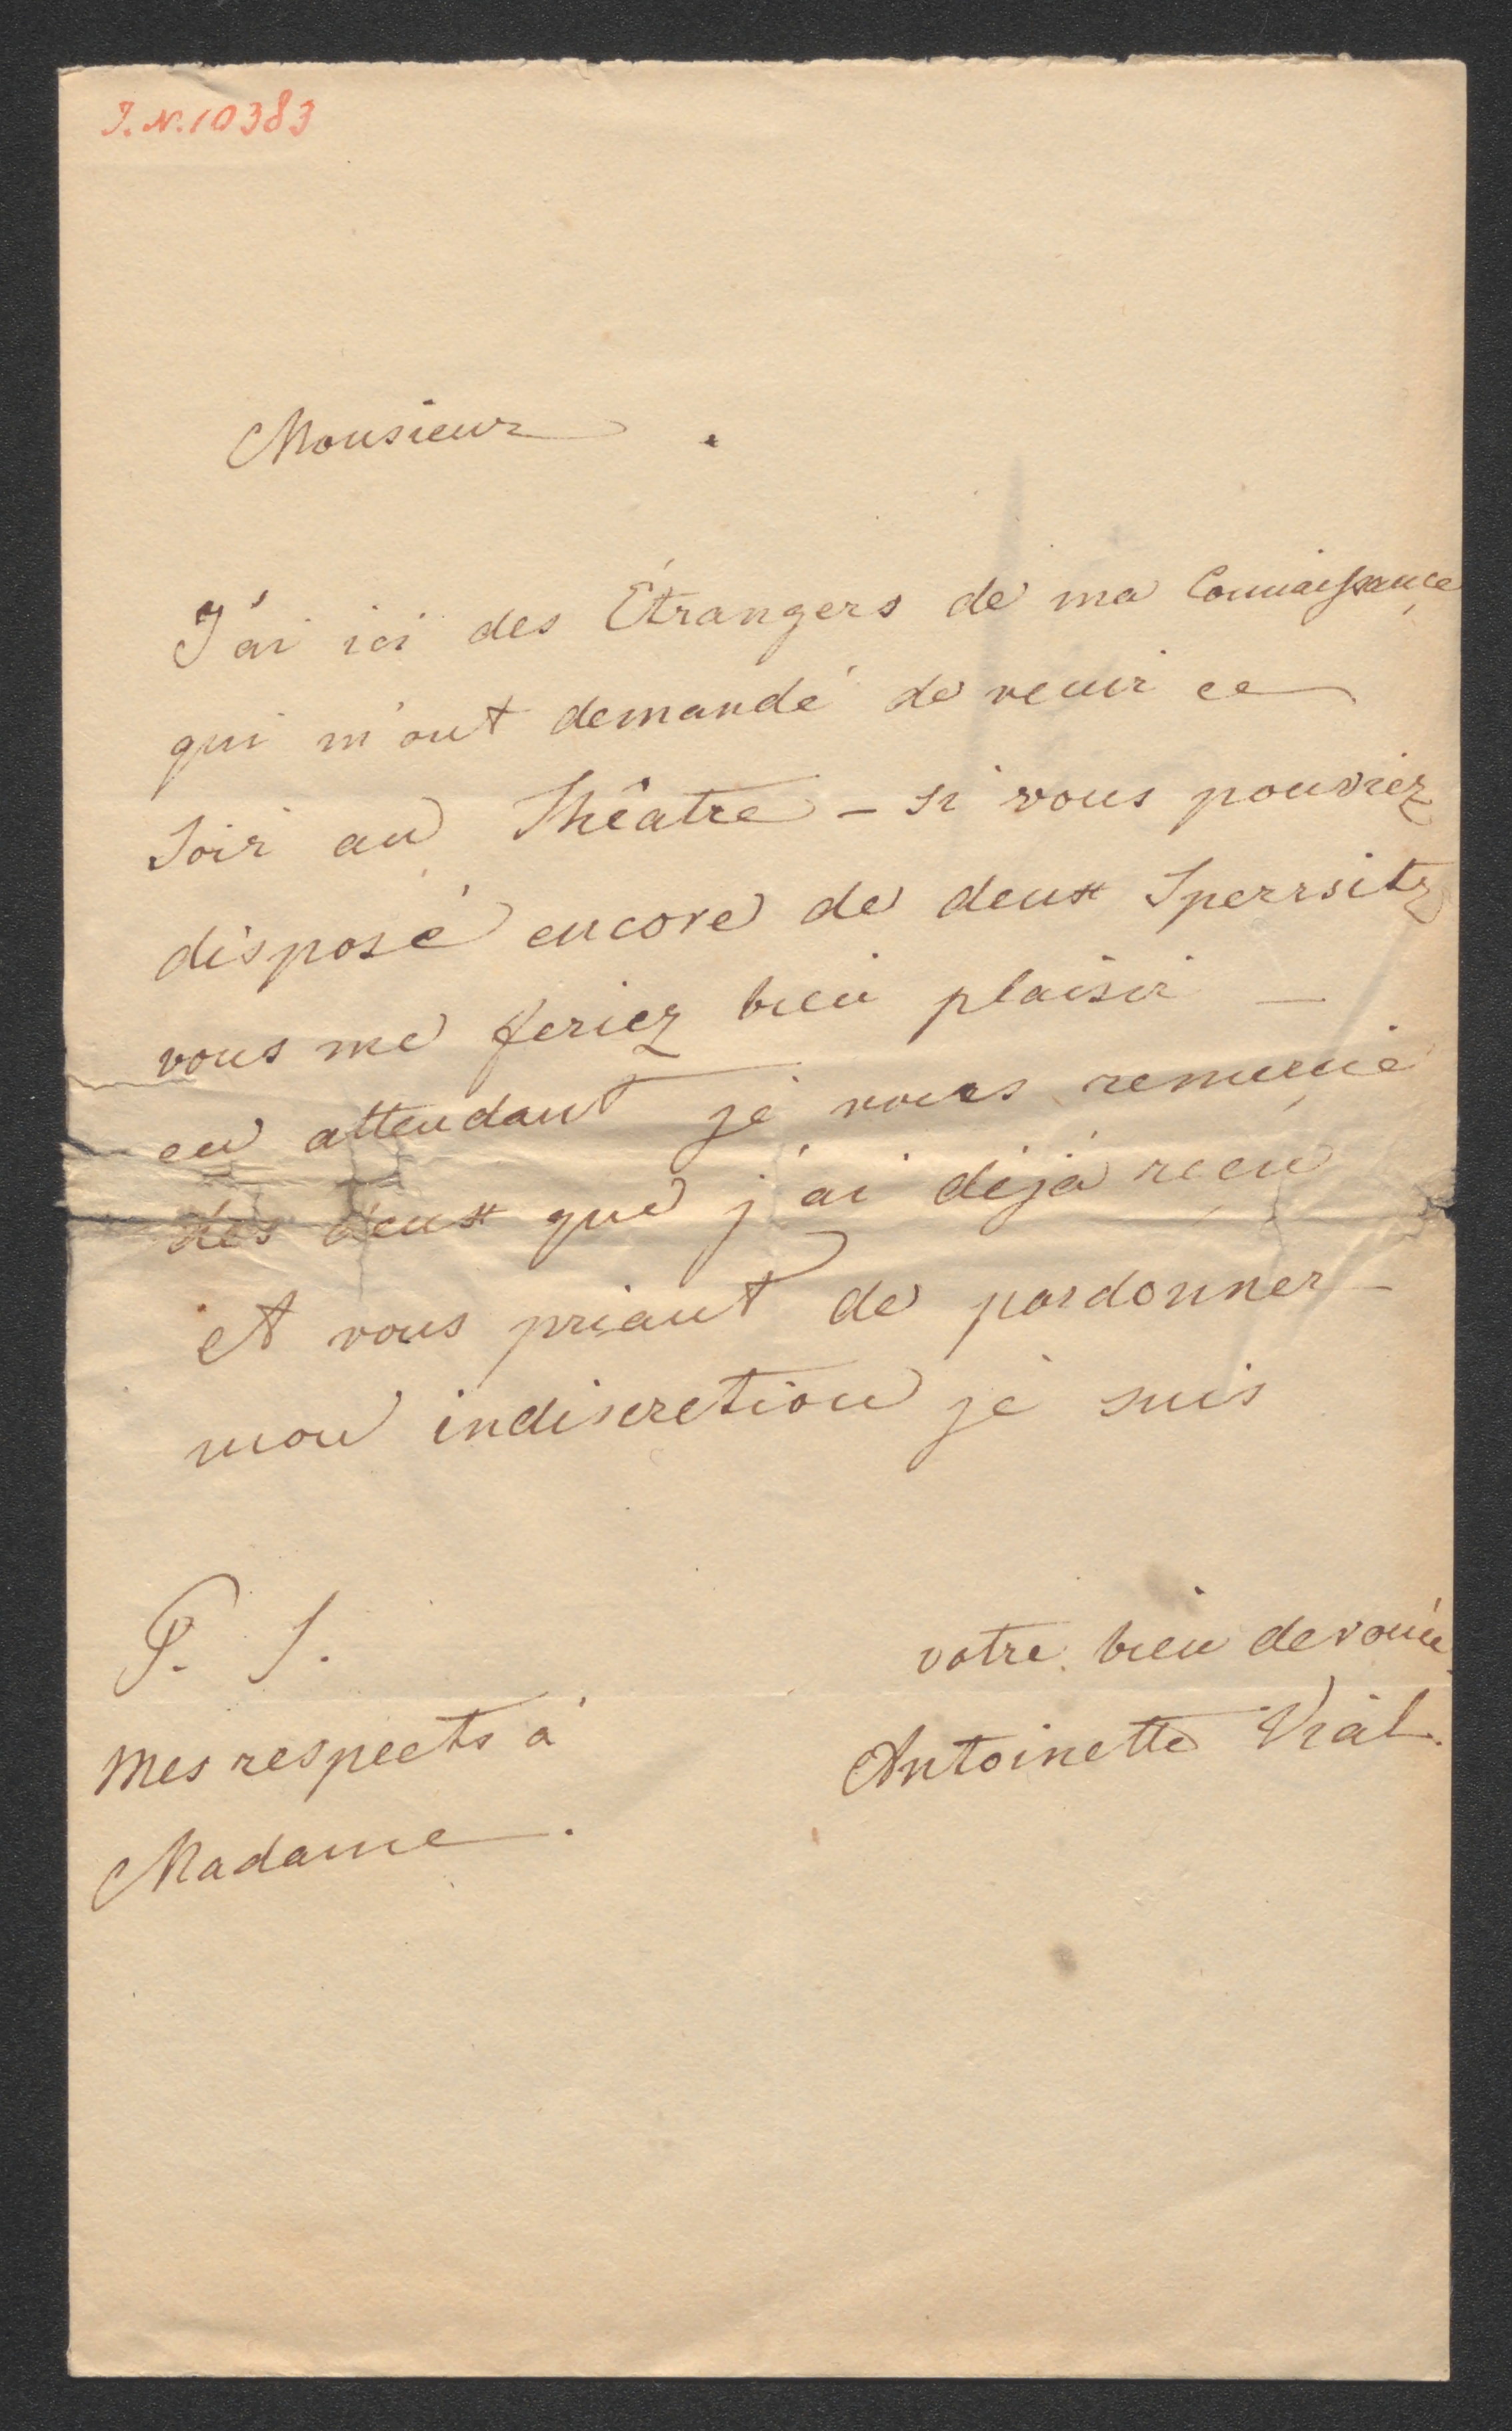 I.N.10383
Monsieur.
J'ai ici des Étrangers de ma Connaissançe
qui m'ont demandé de venir ce
Soir au Thêatre – si vous pouvriez
disposé encore de deux Sperrsitz
vous me feriez bien plaisir –
en attendant je vous remerçie
des deux que j'ai déjà reçu
et vous priant de pardonner –
mon indiscretion je suis
P. S.
votre bien devouée
mes respects à
Antoinette Viál.
Madame.